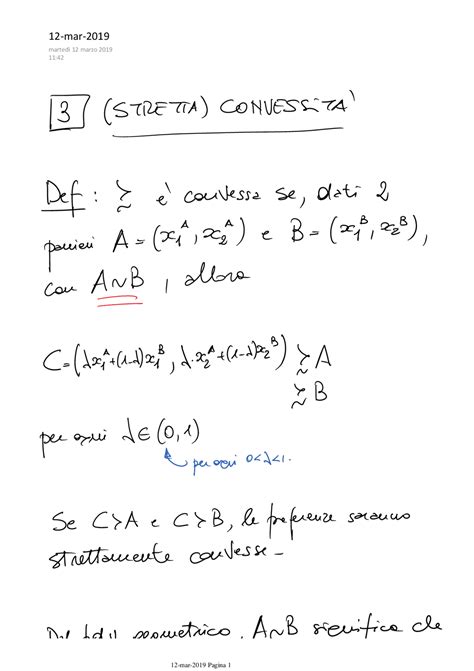 12-mar-2019
martedì 12 marzo 2019
11:42
3 (STRETTA) CONVESSITA'
Def : ≿ è convessa se, dati 2
panieri A = (x₁ᴬ, x₂ᴬ) e B = (x₁ᴮ, x₂ᴮ),
con A∼B , allora
C = (λx₁ᴬ+(1-λ)x₁ᴮ, λ·x₂ᴬ+(1-λ)x₂ᴮ) ≿ A
≿ B
per ogni λ∈(0,1)
per ogni 0<λ<1.
Se C≻A e C≻B, le preferenze saranno
strettamente convesse -
geometrico, A∼B significa che
12-mar-2019 Pagina 1